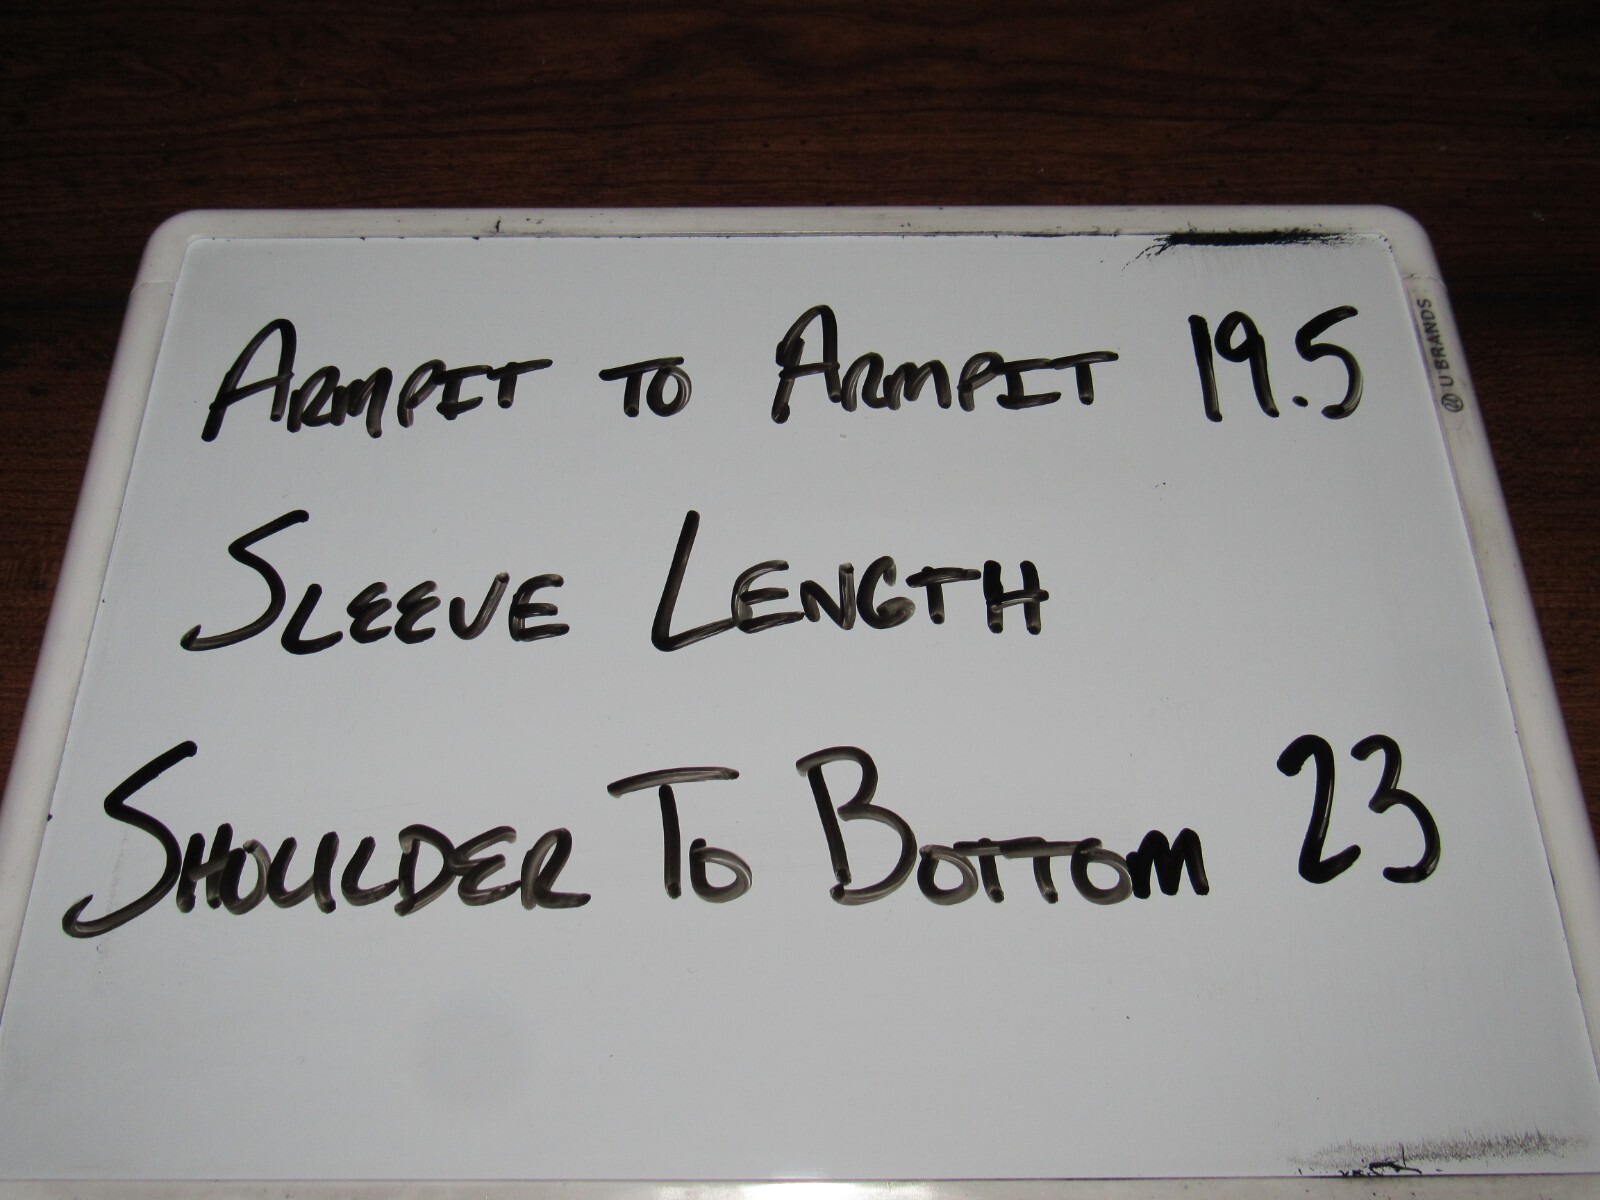 ARMPIT TO ARMPIT 19.5
SLEEVE LENGTH
SHOULDER TO BOTTOM 23
U BRANDS